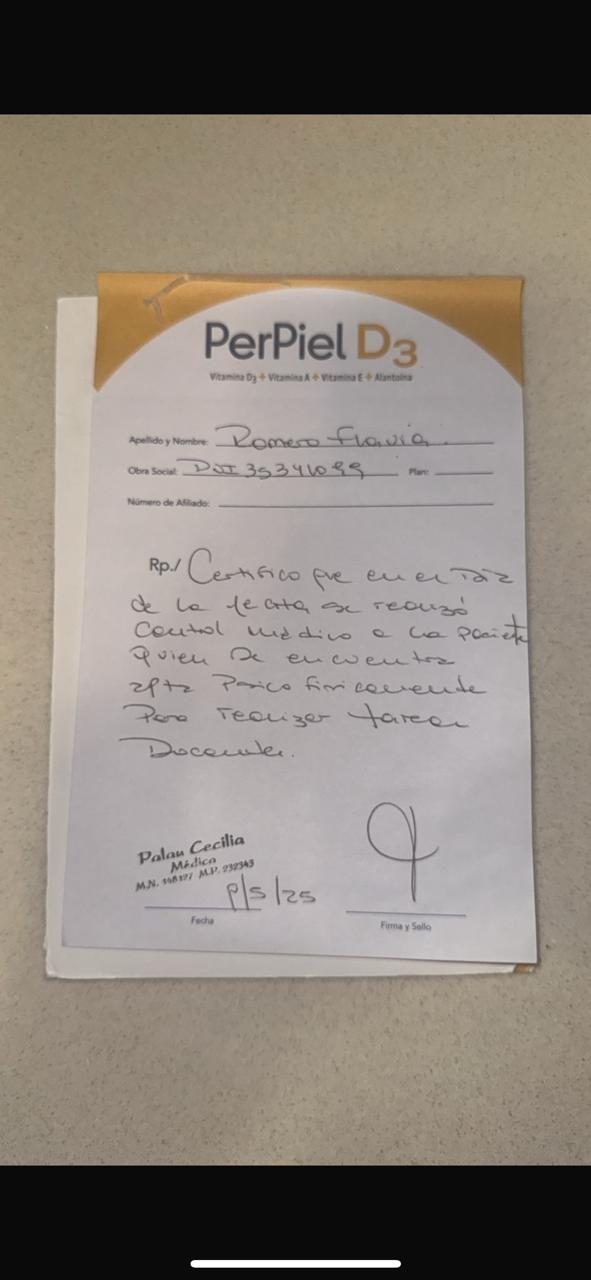 PerPiel D3
Vitamina D3 + Vitamina A + Vitamina E + Alantoína
Apellido y Nombre: Romero Flavia
Obra Social: DNI 35341099 Plan:
Número de Afiliado:
Rp./ Certifico que en el día
de la fecha se realizó
control médico a la paciente
quien se encuentra
apta Psicofísicamente
para realizar tareas
Docentes.
Palau Cecilia
Médica
M.N. M.P. 232343
/5/25
Fecha
Firma y Sello